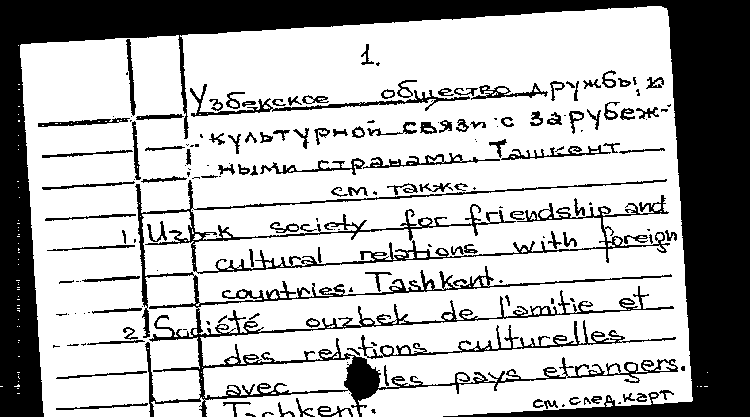 1.
Узбекское общество дружбы и
культурной связи с зарубеж-
ными странами. Ташкент
см. также.
1. Uzbek society for friendship and
cultural relations with foreign
countries. Tashkent.
2. Société ouzbek de l'amitie et
des relations culturelles
avec les pays etrangers.
Tashkent.
см. след. карт